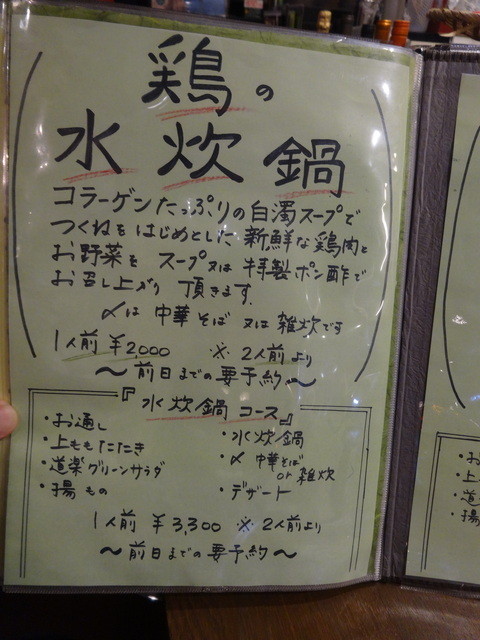 鶏の
水炊鍋
コラーゲンたっぷりの白濁スープで
つくねをはじめとした新鮮な鶏肉と
お野菜を スープ又は特製ポン酢で
お召し上がり 頂きます.
〆は 中華そば 又は 雑炊です
1人前 ¥2,000 ※2人前より
〜前日までの要予約〜
『水炊鍋コース』
・お通し
・上ももたたき
・道楽グリーンサラダ
・揚もの
・水炊鍋
・〆 中華そば
or 雑炊
・デザート
1人前 ¥3,300 ※2人前より
〜前日までの要予約〜
・お
・上
・道
・揚